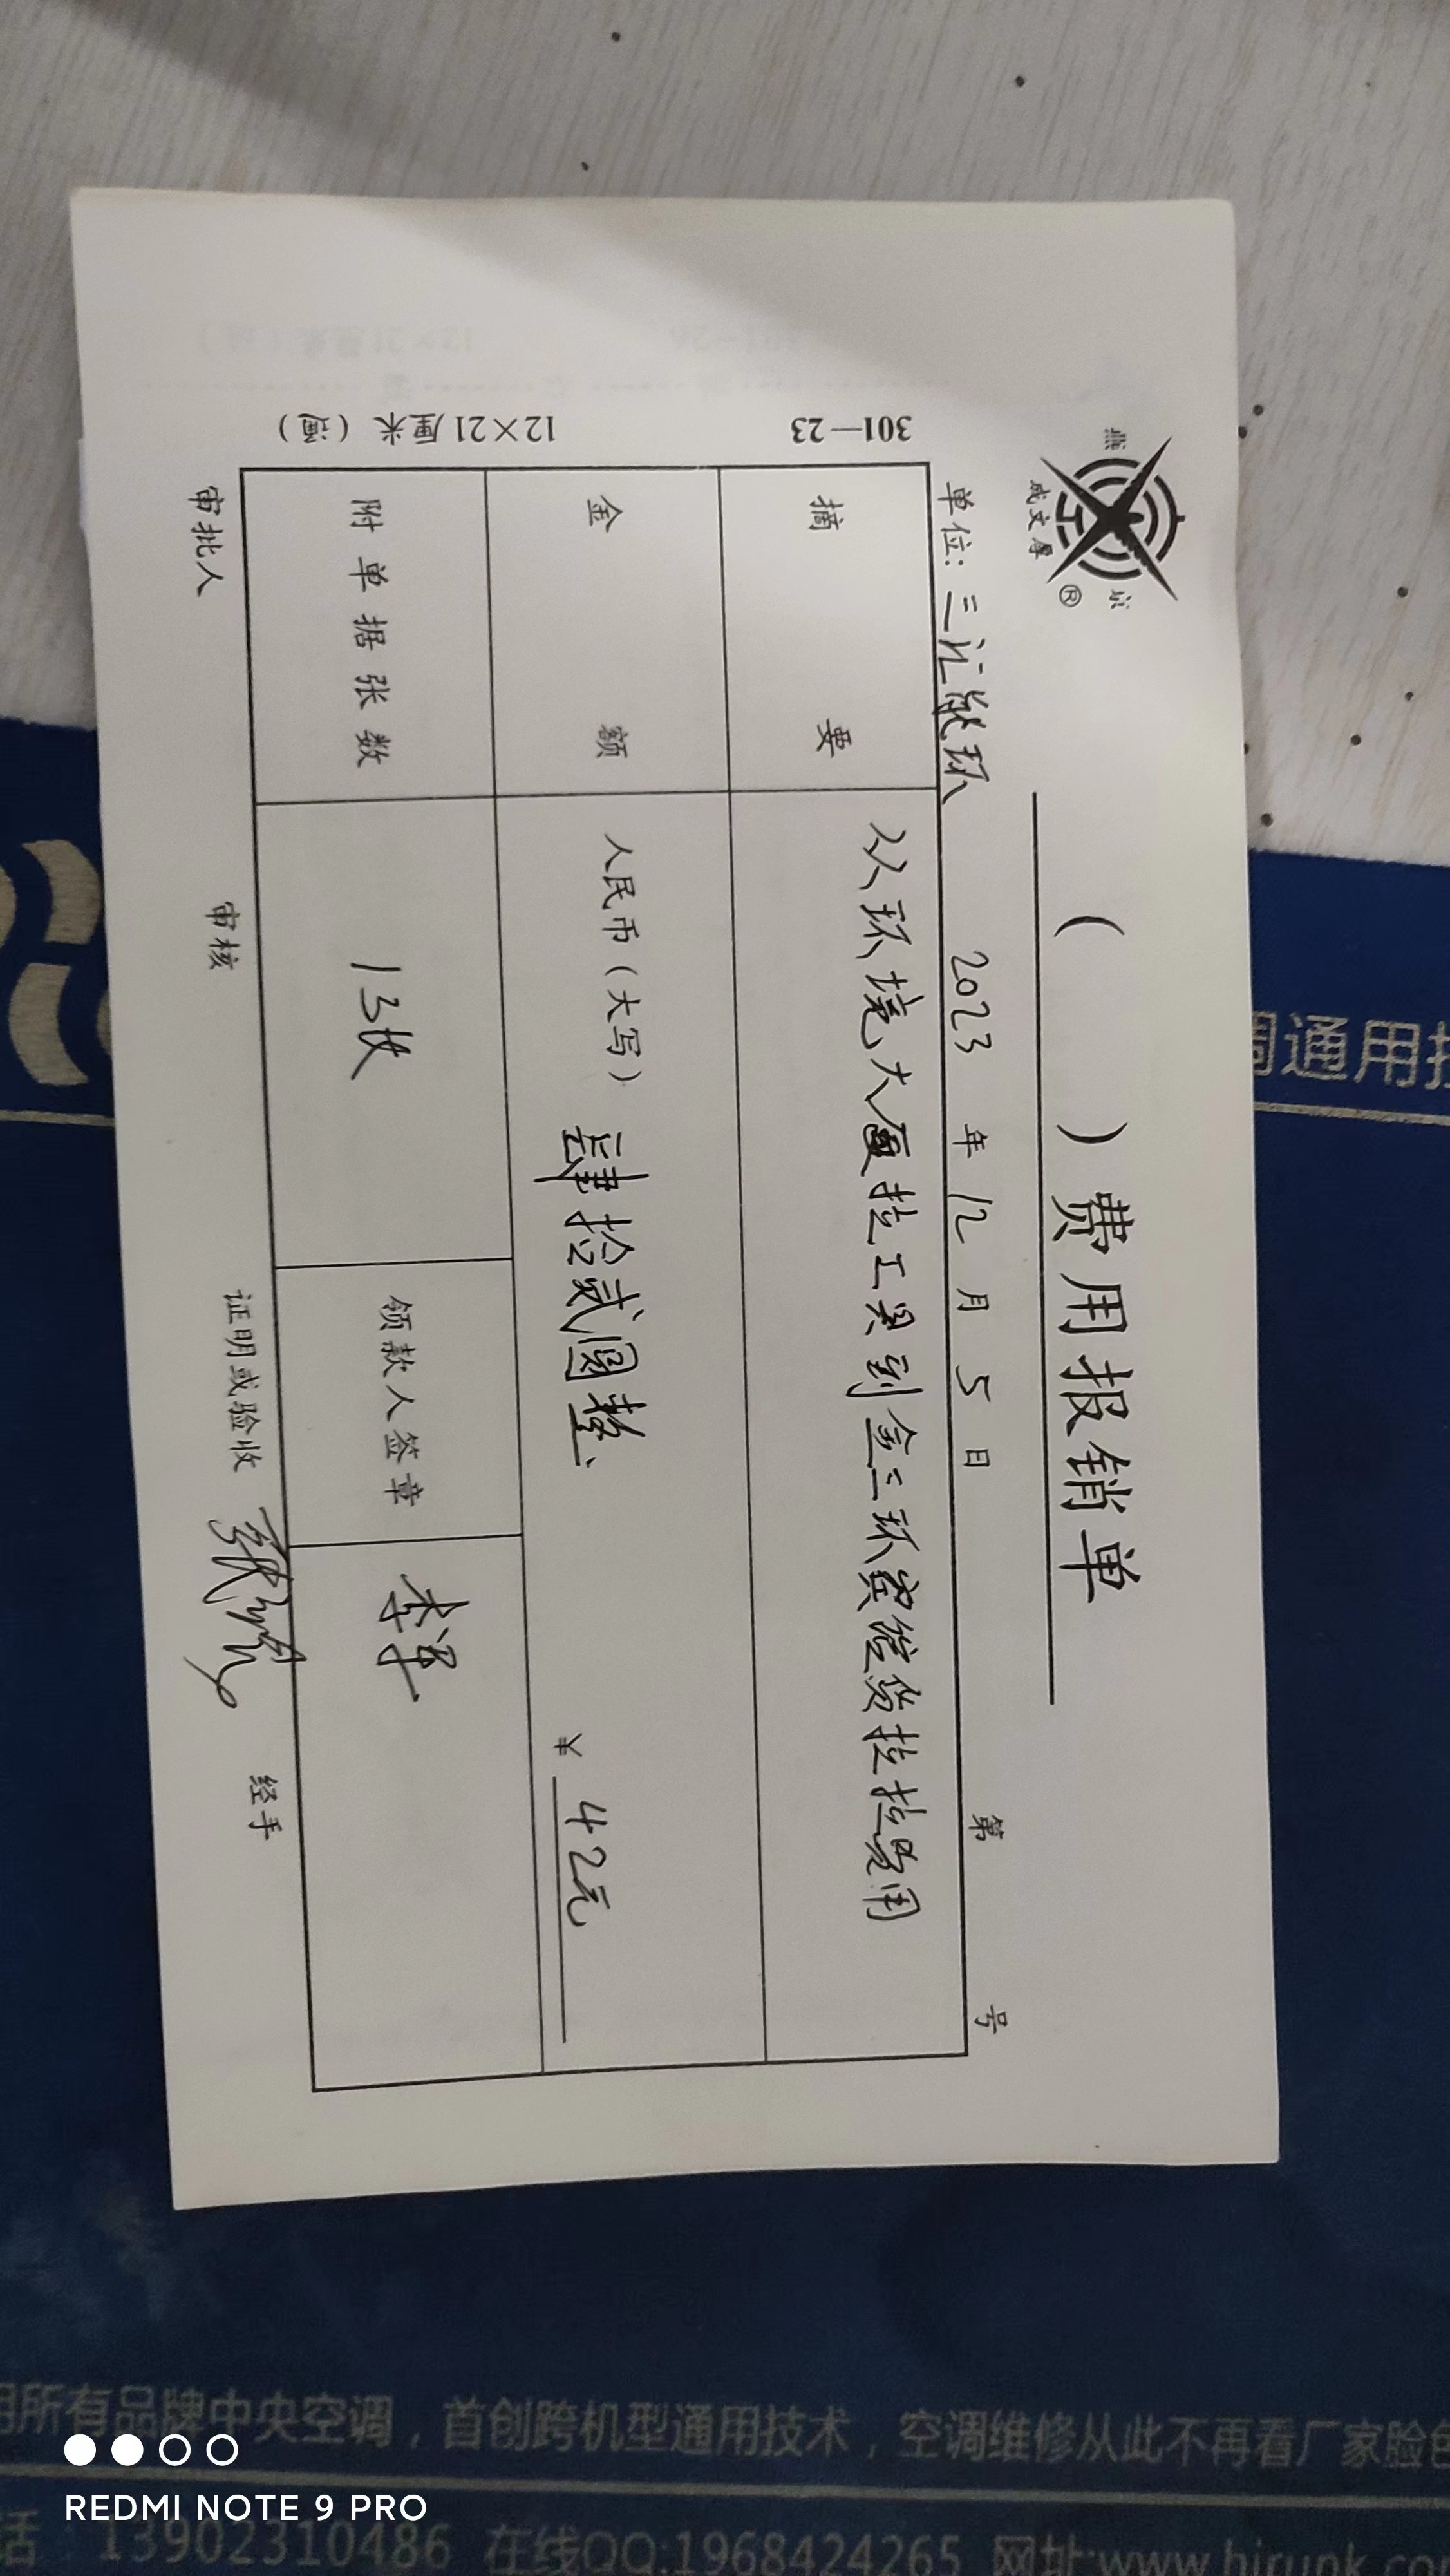 燕京
成文厚
®
（ ）费用报销单
单位：三汇能环 2023 年 12 月 5 日 第 号
摘要 从环境大厦拉工具到金三环宾馆货拉拉费用
金额 人民币（大写） 肆拾贰圆整 ¥ 42元
附单据张数 1张 领款人签章 李洋
审批人 审核 证明或验收 经手
301—23 12×21厘米（通）
调通用
用所有品牌中央空调，首创跨机型通用技术，空调维修从此不再看厂家脸色
话 13902310486 在线QQ:1968424265 网址:www.hirunk.co
REDMI NOTE 9 PRO